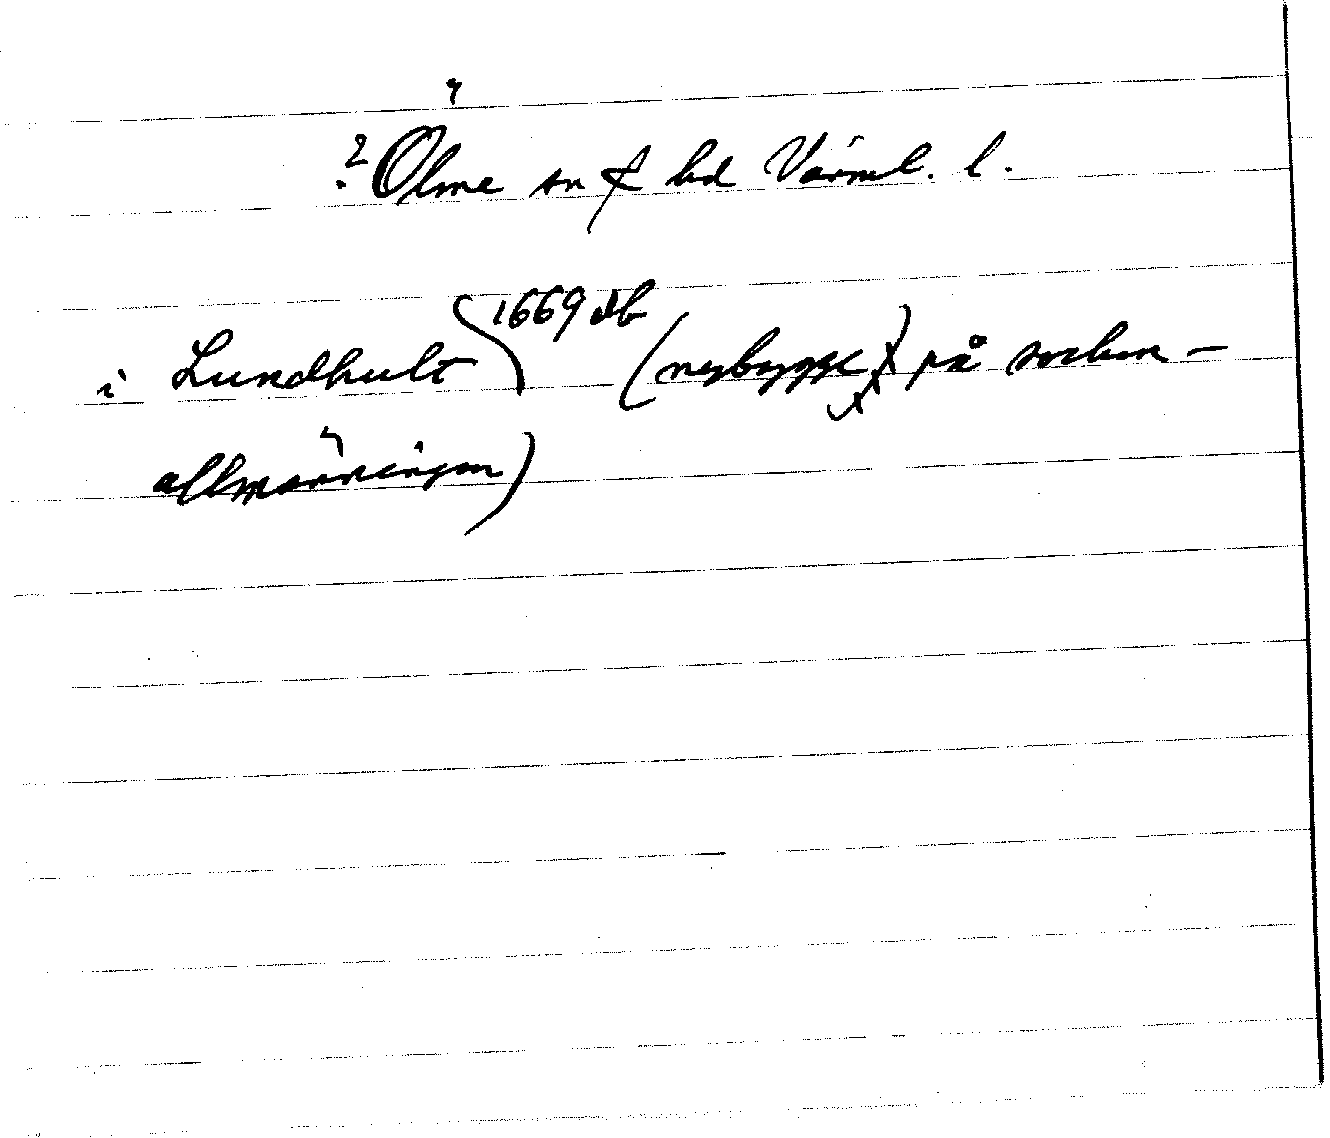 ? Ölme sn & hd Värml. l.
i Lundhult 1669 db (nybygge) på socken-
allmänningen)